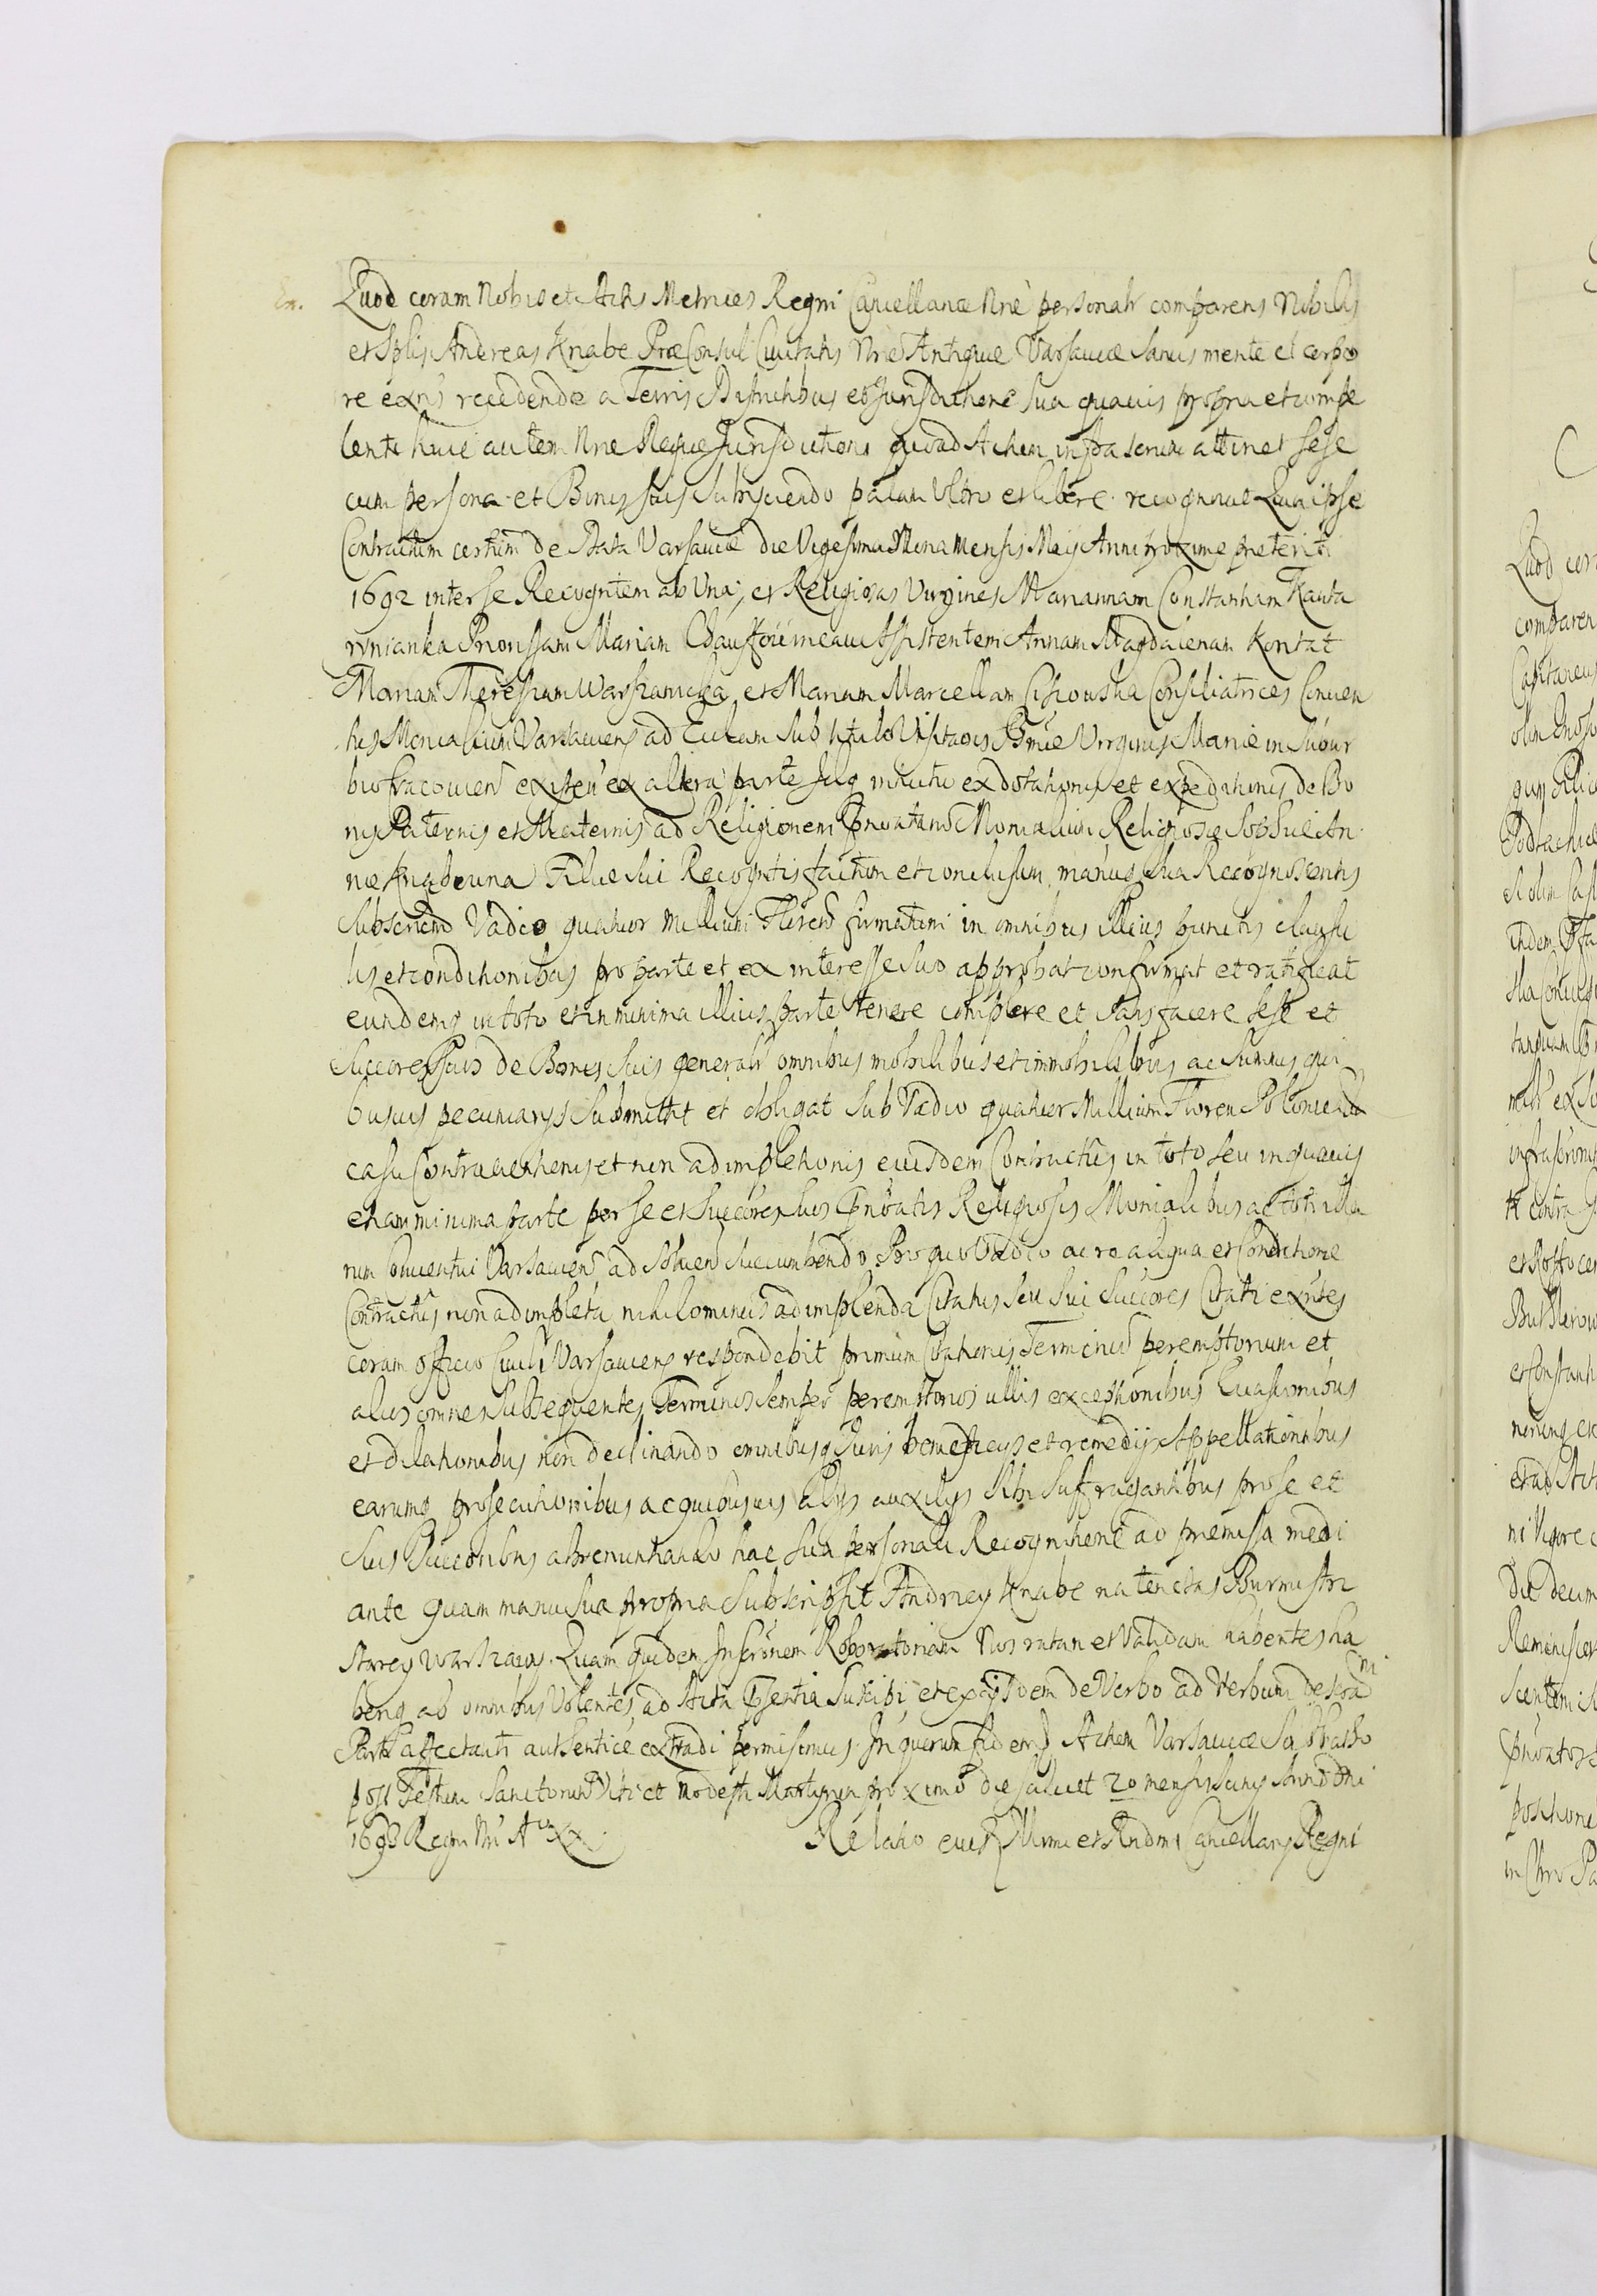 Quod coram Nobis et Actis Metrices Regni Cancellariæ Nrē personalr comparens Nobilis
et Splis Andreas Knabe PræConsul Civitatis Nrē Antiquæ Varsaviæ Sanus mente et corpo
re exns recedendo a Terris Districtibus et Jurisdictione sua quavis propria et compe
tenti huic autem Nrē Jurisdictioni quoad Actum infra scrum attinet sese
cum persona et Bonis suis subijciendo palam libere recognovit Quia ipse
Contractum certum de Data Varsaviæ die Vigesima Nona Mensis Maij Anni proxime preteriti
1692 inter se Recogntem ab Una, et Religiosas Virgines Mariannam Constantiam
Priorissam Mariam Assistentem Annam Magdalenam Kontat
Mariam Theressiam Warszawicka et Mariam Marcellam Consiliatrices Conven
tus Monialium Varsaviens ad Eccam sub titulo Visitaois Bmæ Virginis Mariæ in Subur
bio Cracovien existen ex altera parte intuitu exdotationis et expeditionis de Bo
nis Paternis et Maternis ad Religionem Prnoatarum Monialium Religiosæ An
næ Knabeuna Filiæ sui Recogntis factum et conclusum manuq sua Recognoscentis
subscriend Vadio quatuor Millium Floren firmatum in omnibus illius punctis clausu
lis et conditionibus pro parte et ex interesse suo approbat confirmat et ratificat
eundemq in toto et in minima illius parte tenere complere et satisfacere sese et
Succores suos de Bonis suis generalr omnibus mobilibus et immobilibus ac summis qui
busvis pecuniarijs submittit et obligat sub Vadio quatuor Millium Floren Polonical
casu Contraventionis et non adimpletionis eiusdem Contractus in toto seu in quavis
etiam minima parte per se et Succores suos Prnoatis Religiosis Monialibus ac toti illa
rum Conventui Varsavien ad solven succumbendo Pro quo Vadio ac re aliqua et Conditione
Contractus non adimpleta nihilominus adimplenda Citatus seu sui Succores Citati exntes
coram officio Civili Varsaviens respondebit primum Citationis Terminum peremptorium et
alios omnes subsequentes Terminos semper peremptorios ullis exceptionibus Evasionibus
et dilationibus non declinando omnibusq Juris beneficijs et remedijs Appellationibus
earumq prosecutionibus ac quibusvis alijs auxilijs sibi suffragantibus pro se et
suis Succoribus abrenuntiando hac sua personali Recognitione ad premissa medi
ante Quam manu sua propria subscripsit Andrzey Knabe na ten czas Burmistrz
Starey Warszawy. Quam quidem Inscronem Roboratoriam Nos ratam et Validam habentes ha
beriq ab omnibus Volentes ad Acta Prsentia suscipi et ex ijsdem de Verbo ad Verbum descri
Partiq affectanti authentice extradi permisimus. In quorum fidem Actum Varsaviæ Sabbatho
post Festum Sanctorum Viti et Modesti Martyrum proximo die scilicet 20 mensis Junij Anno Dni
1693 Regni Nri Ao XX. Relatio eiusd Illmi et Rndmi Cancellarij Regni